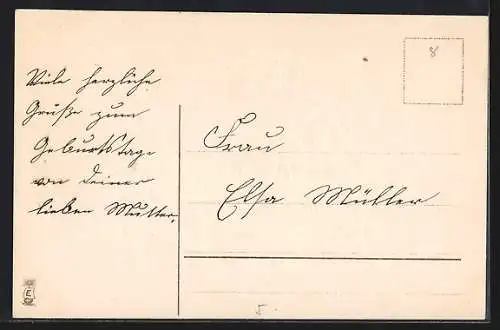 8
Viele herzliche
Grüße zum
Geburtstage
von Deiner
lieben Mutter.
Frau
Elsa Müller
5.